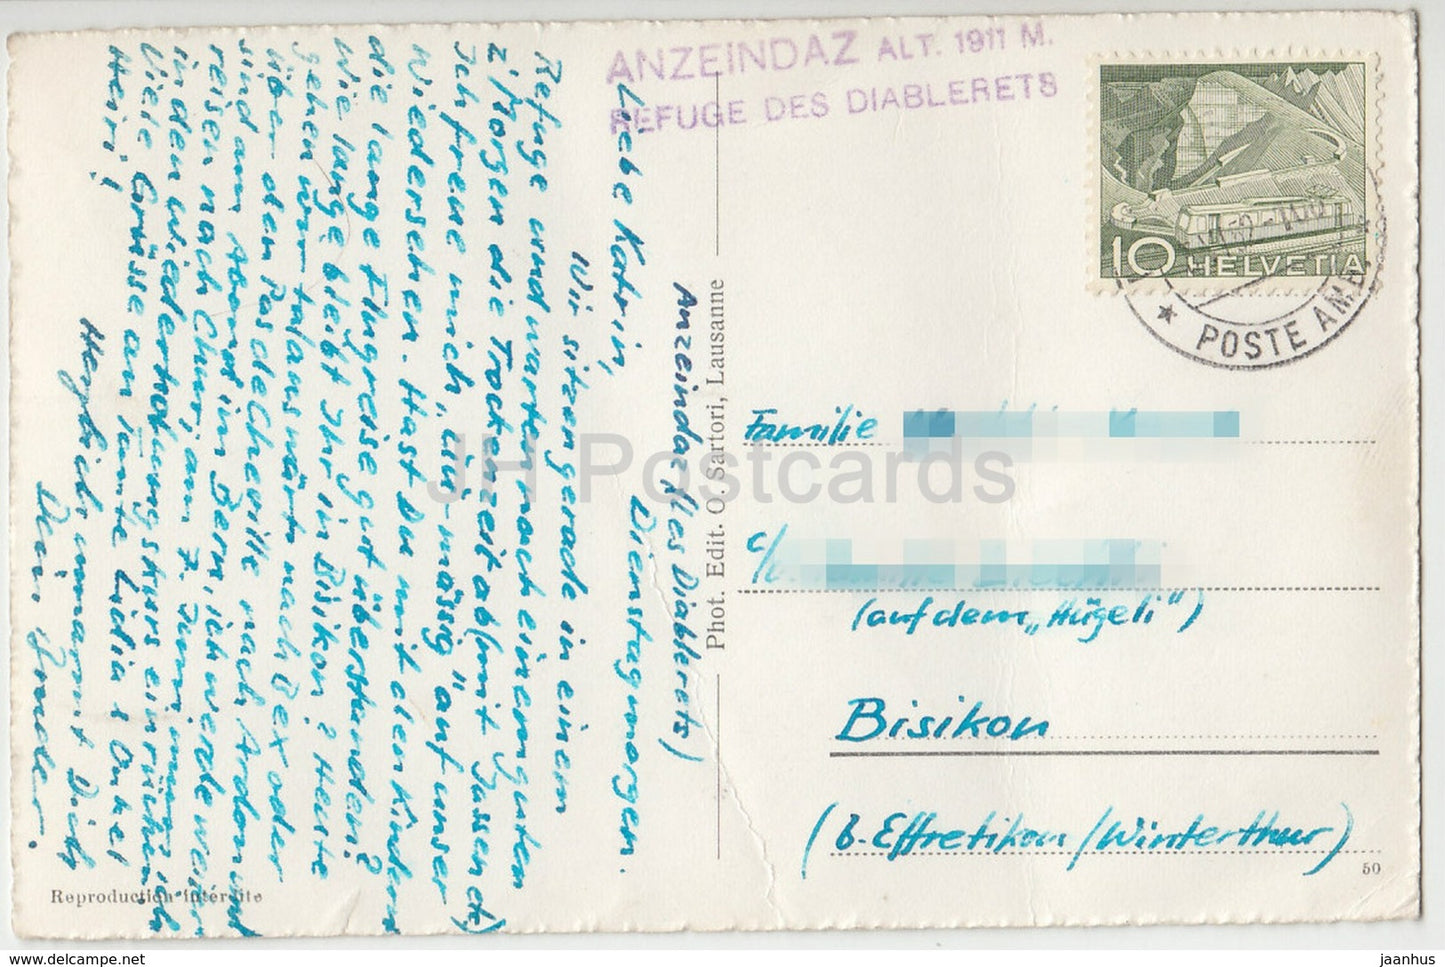 ANZEINDAZ ALT. 1911 M.
REFUGE DES DIABLERETS
10 HELVETIA
POSTE AMB
Anzeindaz (les Diablerets)
Dienstagmorgen.
Liebe Katrin,
Wir sitzen gerade in einem
Refuge und warten nach einem guten
z'Morgen die Trockenzeit ab (mit Jassen!)
Ich freue mich, auf unser
Wiedersehen. Hast Du mit den Kindern
die lange Flugreise gut überstanden?
Wie lange bleibt Ihr in Bisikon? Heute
gehen wir talauswärts nach Bex oder
über den Pas de Cheville nach Ardon und
sind am Abend in Bern, ich werde
reisen nach Chur, am 7. Juni
in den Wiederholungskurs einrücken.
Viele Grüsse an Tante Lidia & Onkel
Heiri!
Herzlich umarmt Dich
Dein Bruder.
Phot. Edit. O. Sartori, Lausanne
Reproduction interdite
Familie
c/
(auf dem "Hügeli")
Bisikon
(b. Effretikon/Winterthur)
50
JH Postcards
www.hippostcard.com
jaanhus